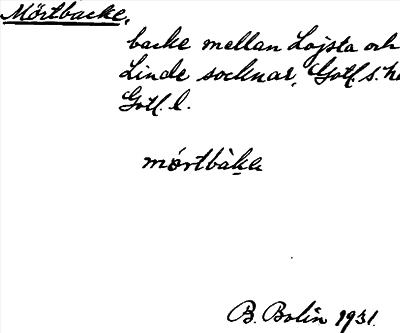 Mörtbacke,
backe mellan Lojsta och
Linde socknar, Gotl. s. hd
Gotl. l.
mórtbàkę
B. Bolin 1931.